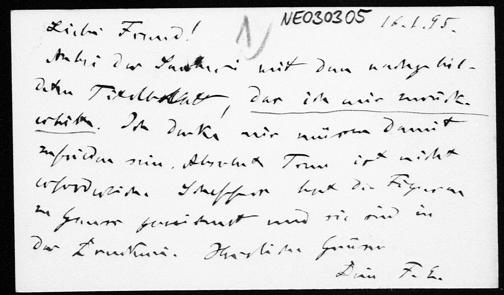 NE030305
1)
16.1.95.
Lieber Freund!
Anbei das mit dem nachgebil-
deten Titelblatt, das ich mir zurück-
erbitte. Ich denke wir müssen damit
zufrieden sein. Absolute Treue ist nicht
erforderlich. hat die Figuren
genau gezeichnet und sie sind in
der Druckerei. Herzliche Grüsse
Dein F. E.